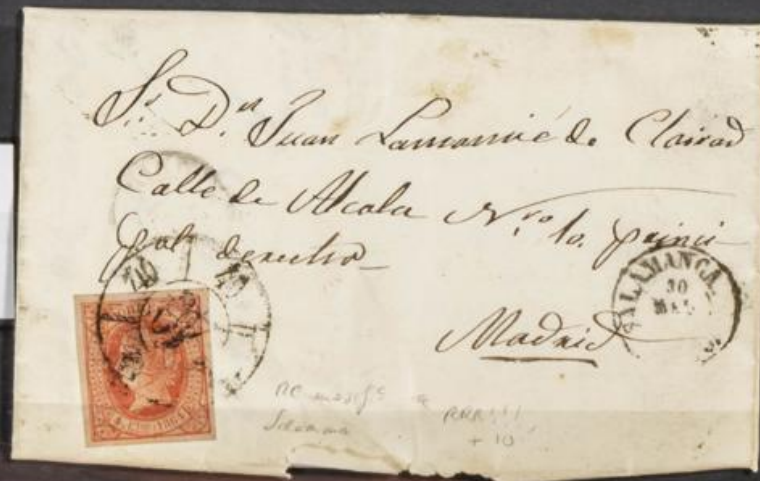 Sr. Dn. Juan Lamamié de Clairac
Calle de Alcala Nro. 10. princi-
pal derecho
Madrid
SALAMANCA
30
MAR
RRR!!!
+ 10